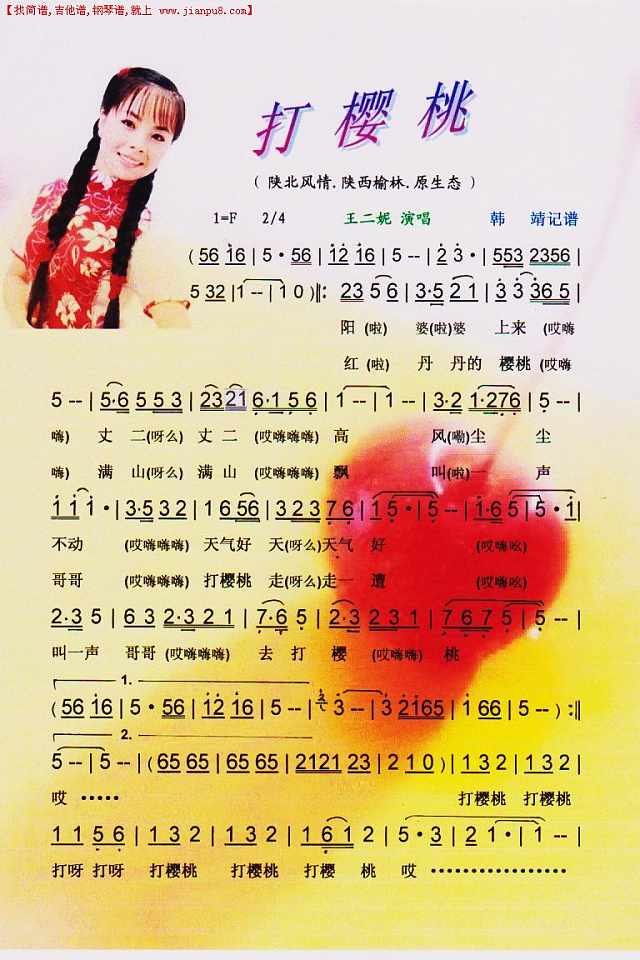 【找简谱,吉他谱,钢琴谱,就上 www.jianpu8.com】
打樱桃
( 陕北风情.陕西榆林.原生态 )
1=F 2/4 王二妮 演唱 韩 靖记谱
( 56 16 | 5 · 56 | 12 16 | 5 -- | 2 3 · | 553 2356 |
5 32 | 1 -- | 1 0 ) ‖: 23 5 6 | 3·5 2 1 | 3 3 36 5 |
阳 (啦) 婆(啦)婆 上来 (哎嗨
红 (啦) 丹 丹的 樱桃 (哎嗨
5 -- | 5·6 5 5 3 | 2321 6·1 5 6 | 1 -- | 1 -- | 3·2 1·276 | 5 -- |
嗨) 丈 二(呀么) 丈 二 (哎嗨嗨嗨) 高 风(嘞)尘 尘
嗨) 满 山(呀么) 满 山 (哎嗨嗨嗨) 飘 叫(啦)一 声
1 1 1 · | 3·5 3 2 | 1 6 56 | 3 2 3 7 6 | 1 5 · | 5 · | 1·6 5 | 5 · 1 |
不动 (哎嗨嗨嗨) 天气好 天(呀么)天气 好 (哎嗨吆)
哥哥 (哎嗨嗨嗨) 打樱桃 走(呀么)走一 遭 (哎嗨吆)
2·3 5 | 6 3 2·3 2 1 | 7·6 5 | 2·3 2 3 1 | 7 6 7 5 | 5 -- |
叫一声 哥哥 (哎嗨嗨嗨) 去 打 樱 (哎嗨嗨) 桃
1.
( 56 16 | 5 · 56 | 12 16 | 5 -- | 3 -- | 3 2165 | 1 66 | 5 -- ) :‖
2.
5 -- | 5 -- | ( 65 65 | 65 65 | 2121 23 | 2 1 0 ) | 1 3 2 | 1 3 2 |
哎 ····· 打樱桃 打樱桃
1 1 5 6 | 1 3 2 | 1 3 2 | 1 6 1 2 | 5 · 3 | 2 1 · | 1 -- ‖
打呀 打呀 打樱桃 打樱桃 打樱 桃 哎 ·················